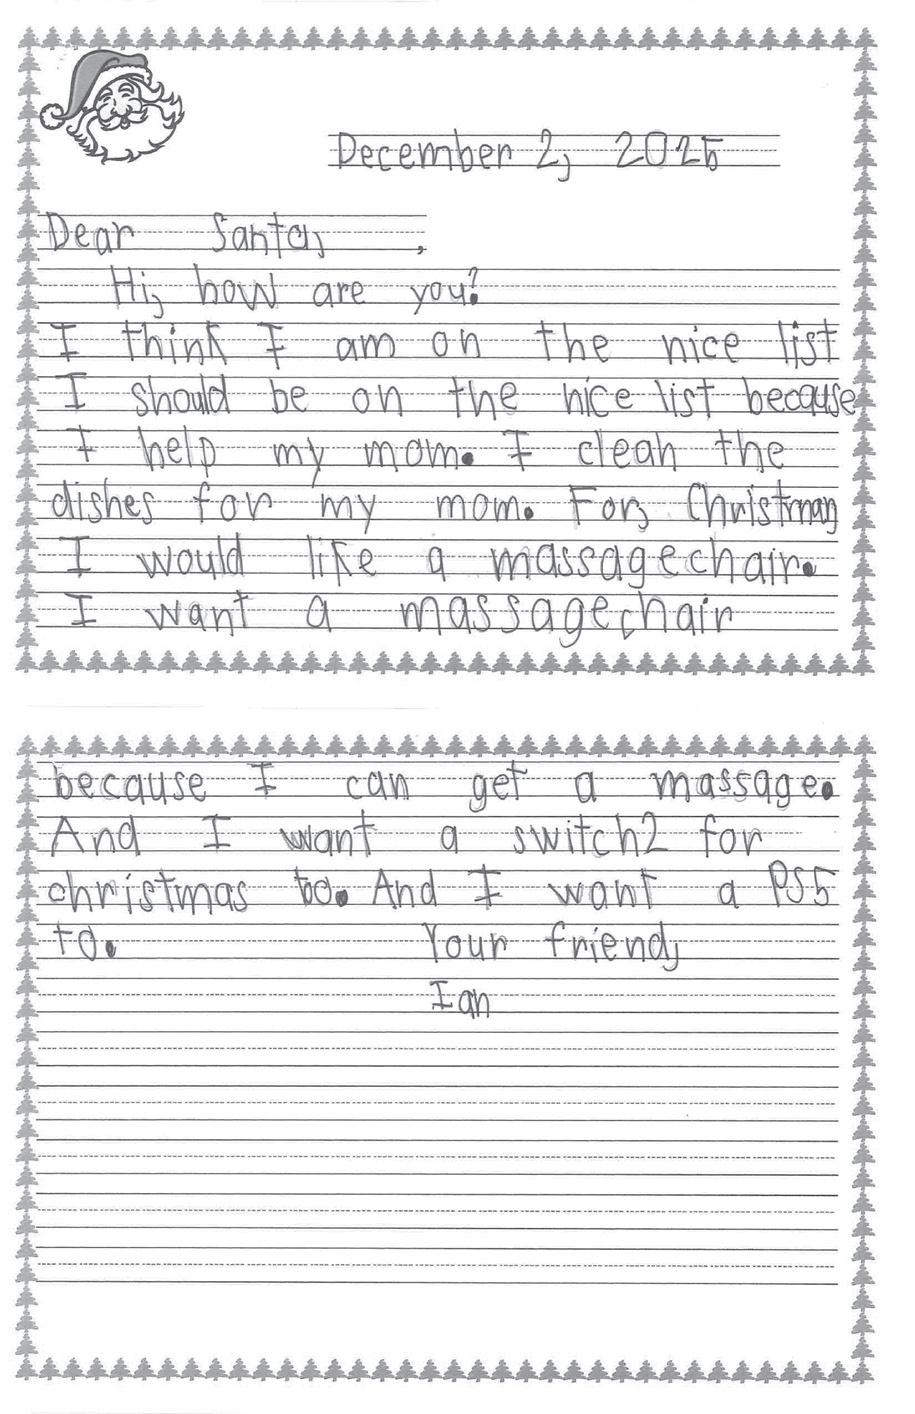 December 2, 2025
Dear Santa, ,
Hi, how are you?
I think I am on the nice list
I should be on the nice list because
I help my mom. I clean the
dishes for my mom. For, Christmas
I would like a massagechair.
I want a massagechair
because I can get a massage.
And I want a switch2 for
christmas to. And I want a PS5
to. Your friend,
Ian